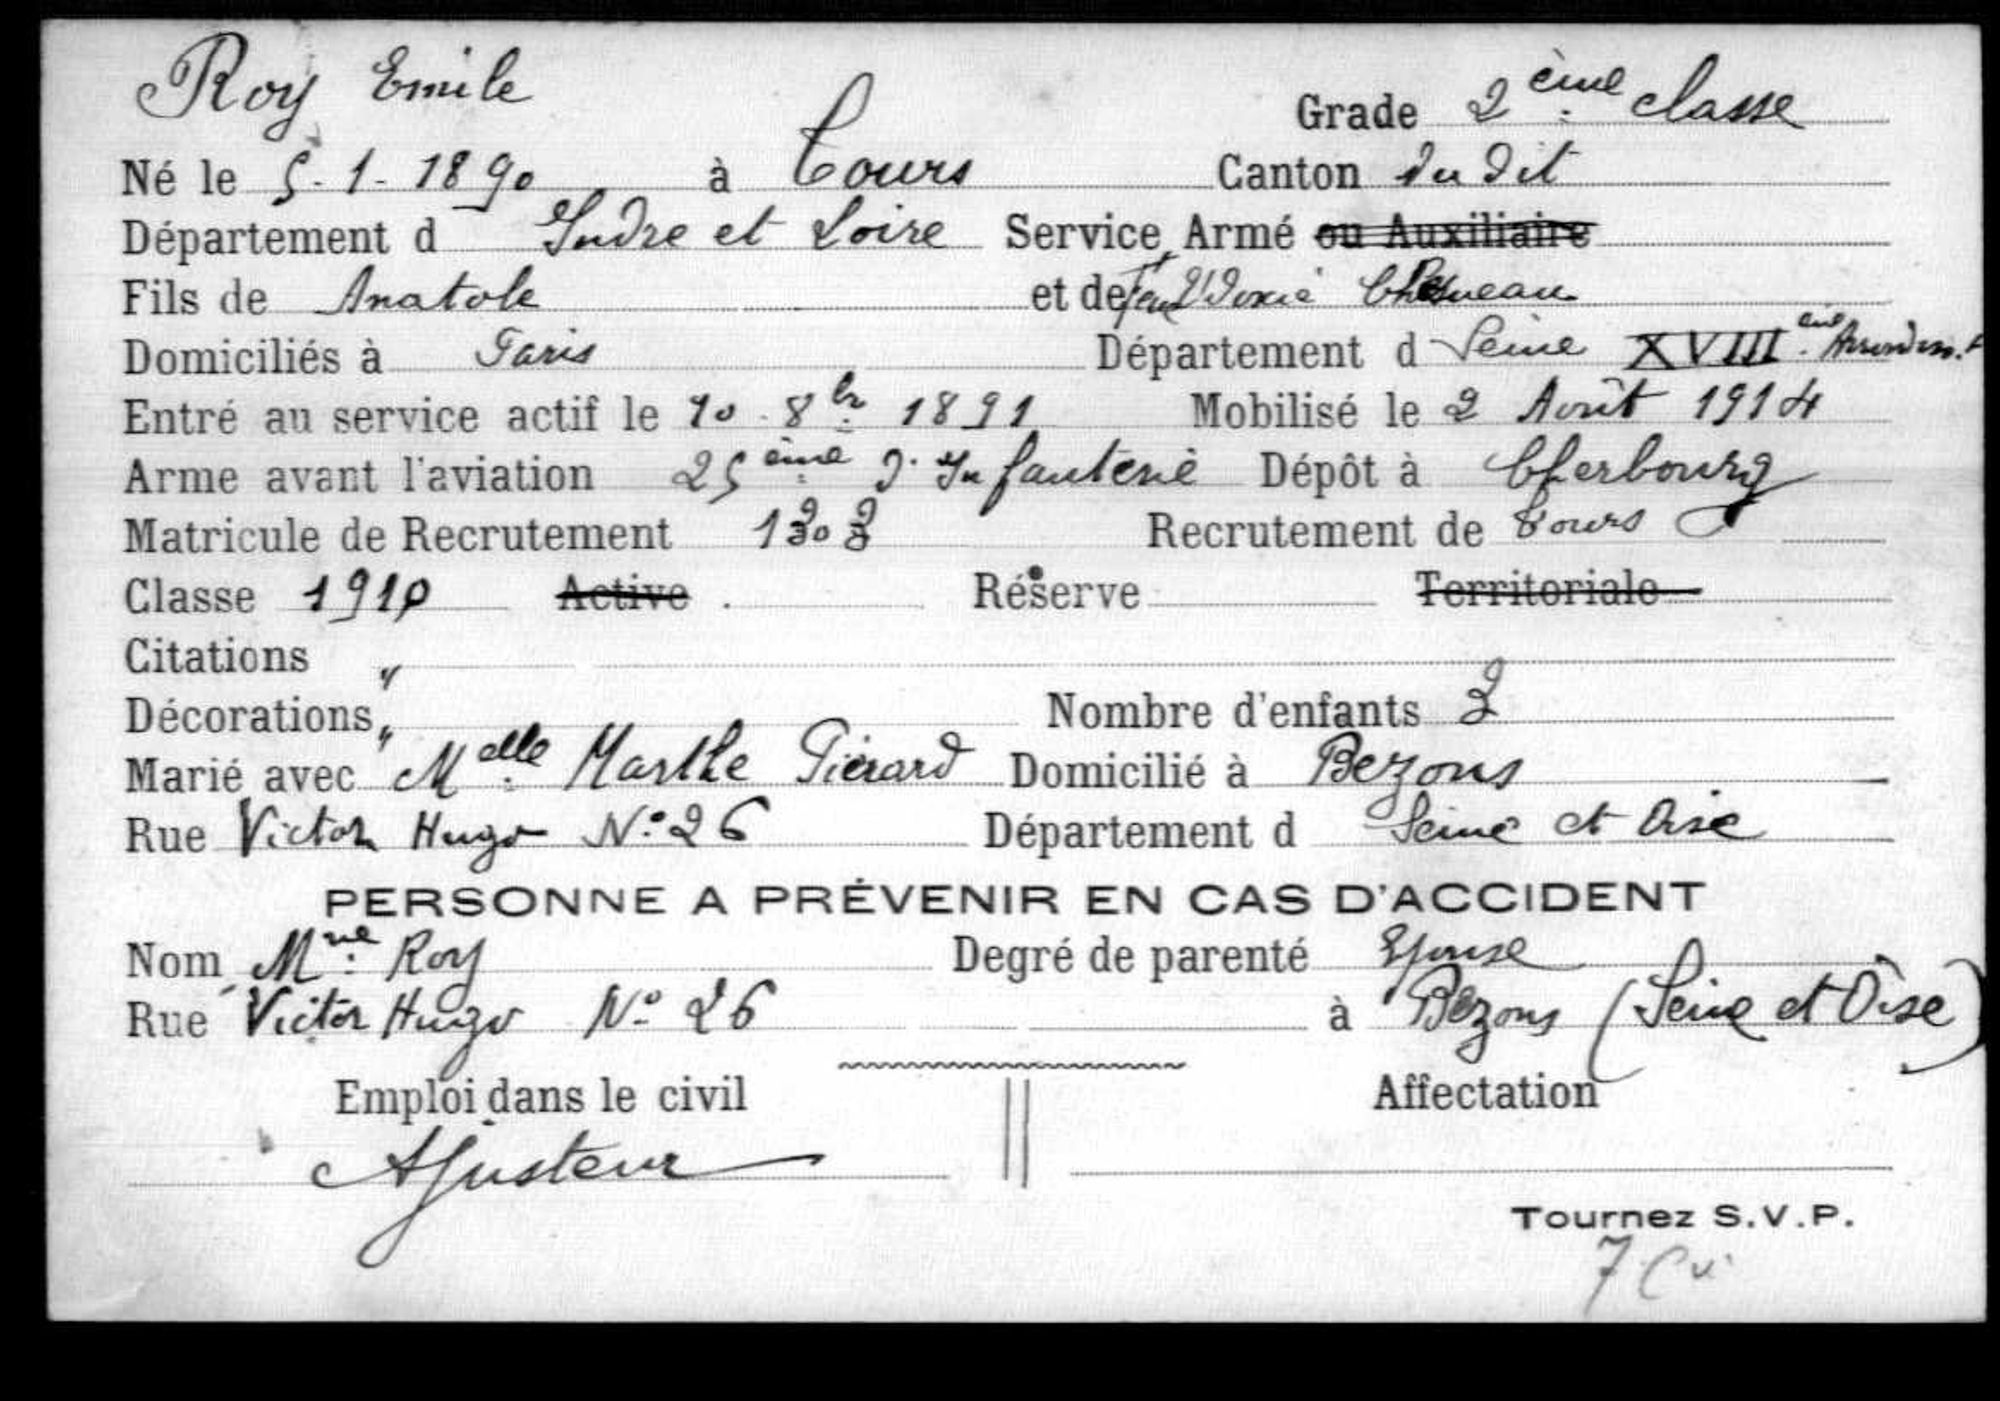 Roy Emile
Grade 2ème classe
Né le 5-1-1890 à Tours Canton du dit
Département d Indre et Loire Service Armé ou Auxiliaire
Fils de Anatole et de feu Chesneau
Domiciliés à Paris Département d Seine XVIII ème Arrondm.t
Entré au service actif le 10 8bre 1891 Mobilisé le 2 Août 1914
Arme avant l'aviation 25ème d'Infanterie Dépôt à Cherbourg
Matricule de Recrutement Recrutement de Tours
Classe 1910 Active Réserve Territoriale
Citations "
Décorations " Nombre d'enfants
Marié avec Melle Marthe Piérard Domicilié à Bezons
Rue Victor Hugo No 26 Département d Seine et Oise
PERSONNE A PRÉVENIR EN CAS D'ACCIDENT
Nom Mme Roy Degré de parenté Epouse
Rue Victor Hugo No 26 à Bezons (Seine et Oise)
Emploi dans le civil Affectation
Ajusteur
Tournez S.V.P.